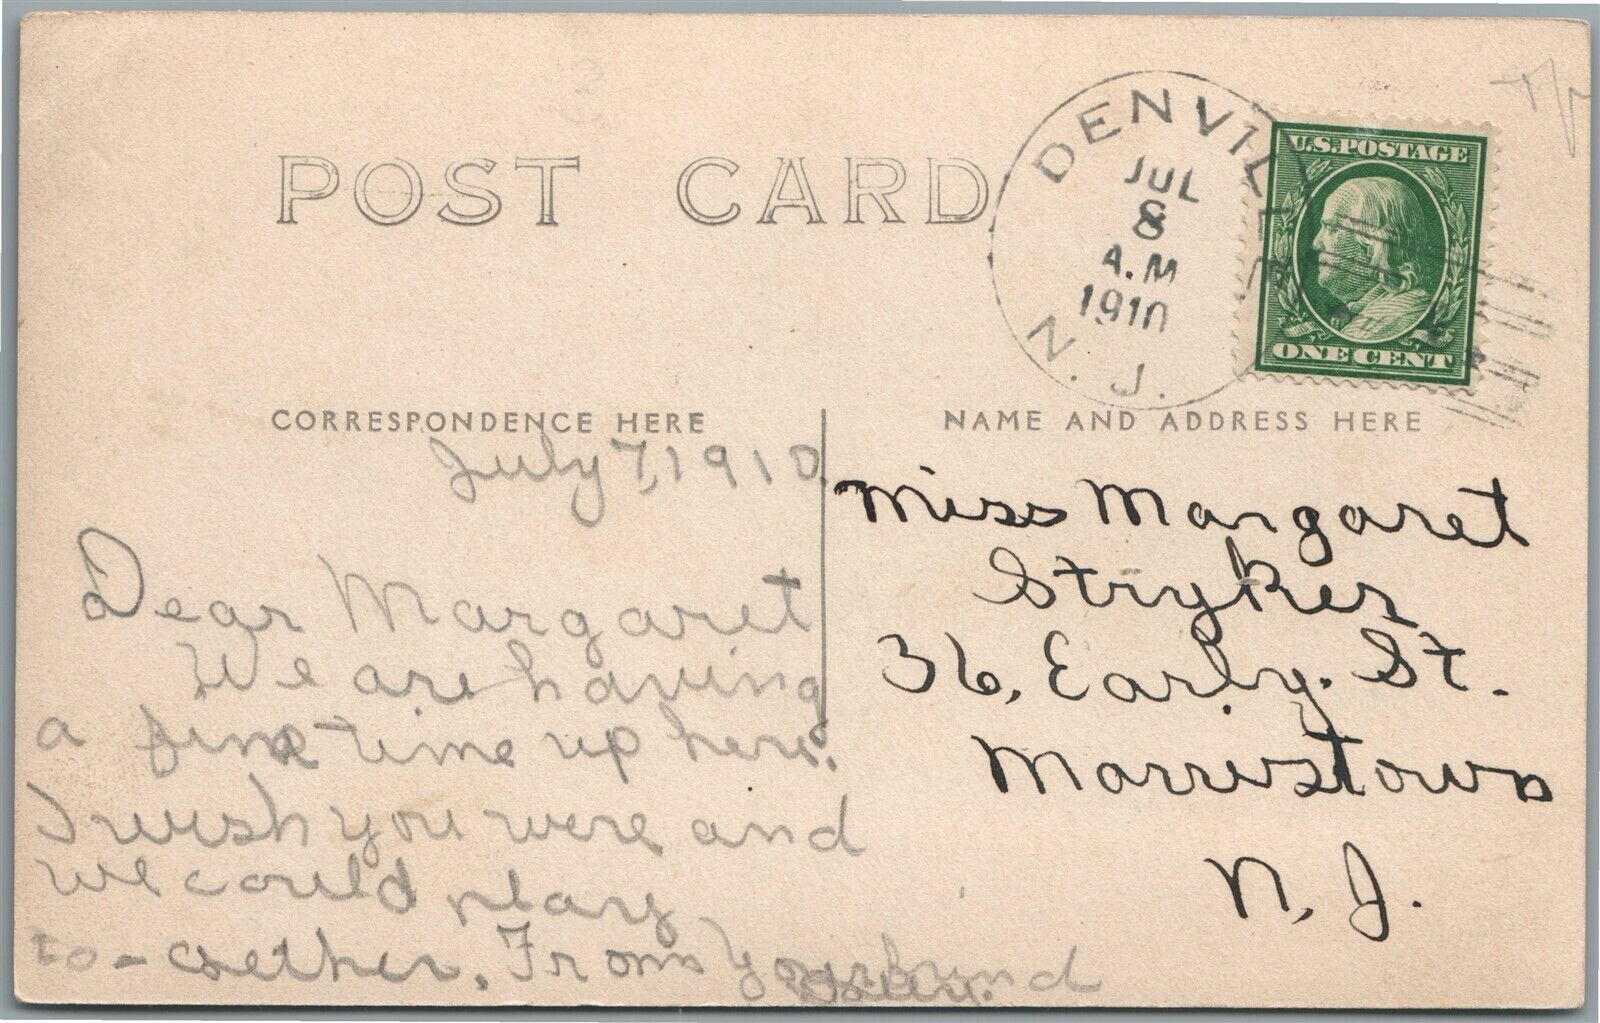 POST CARD
DENVILLE
JUL
8
A.M
1910
N. J.
U.S. POSTAGE
ONE CENT
CORRESPONDENCE HERE
July 7, 1910.
Dear Margaret
We are having
a fine time up here.
I wish you were and
we could play
to-gether. From Your friend
NAME AND ADDRESS HERE
Miss Margaret
Stryker
36, Early. St.
Morristown
N. J.